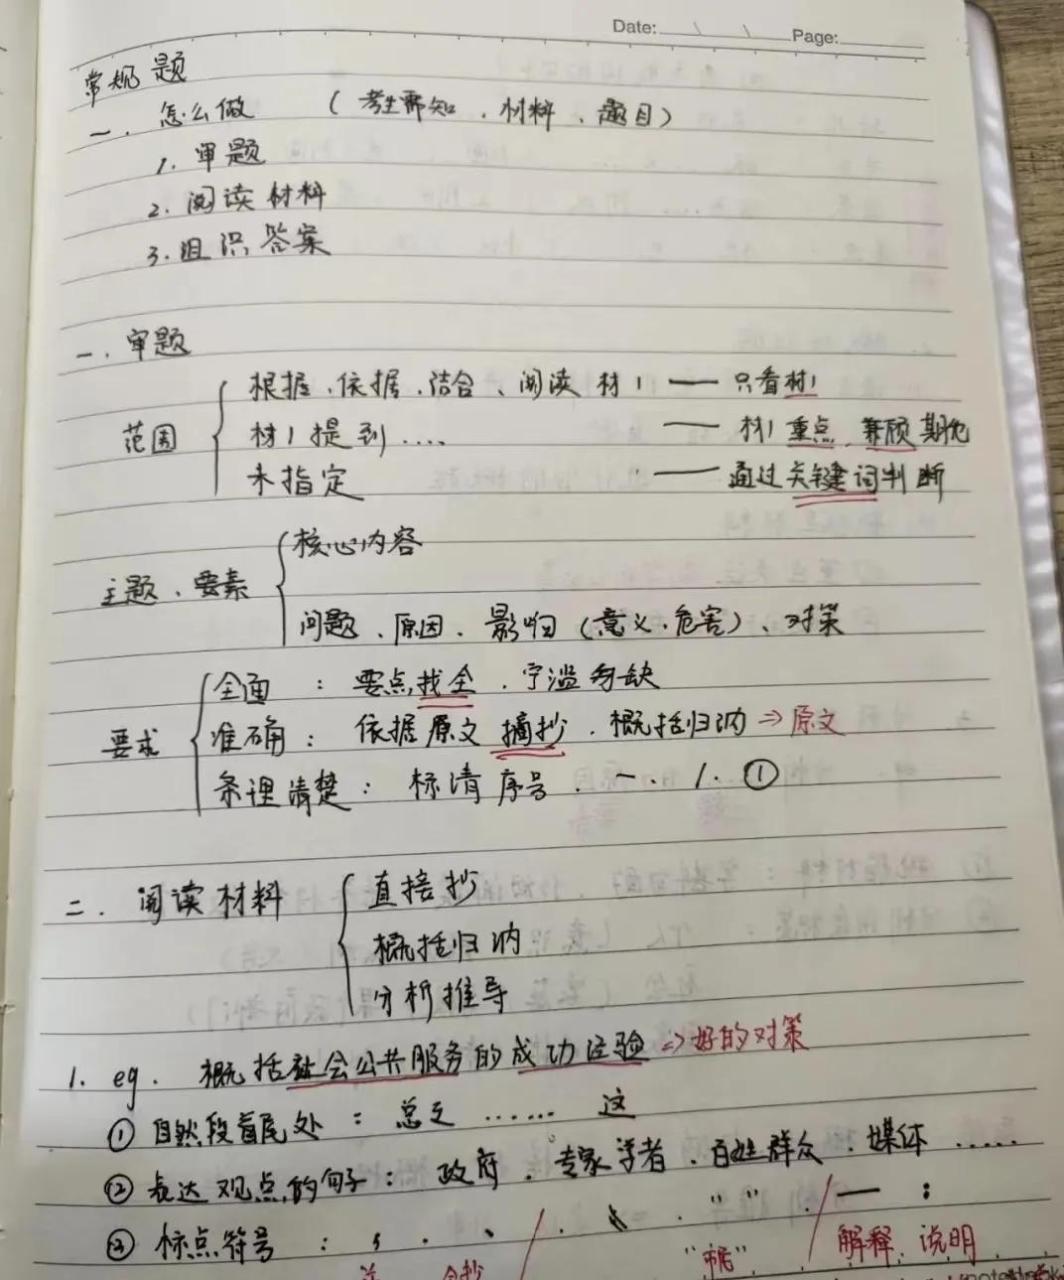 Date: Page:
常规题
一. 怎么做 (考生需知、材料、题目)
1. 审题
2. 阅读材料
3. 组识答案
一. 审题
范围
根据、依据、结合、阅读材1 —— 只看材1
材1提到.... —— 材1重点、兼顾其他
未指定 —— 通过关键词判断
主题、要素
核心内容
问题、原因、影响(意义、危害)、对策
要求
全面: 要点找全、宁滥勿缺
准确: 依据原文摘抄、概括归纳⇒原文
条理清楚: 标清序号、一. 1. ①
二. 阅读材料
直接抄
概括归纳
分析推导
1. eg. 概括社会公共服务的成功经验⇒好的对策
① 自然段首尾处: 总之 ...... 这
② 表达观点的句子: 政府、专家学者、百姓群众、媒体.....
③ 标点符号: , . 、 / . " " / — :
解释、说明